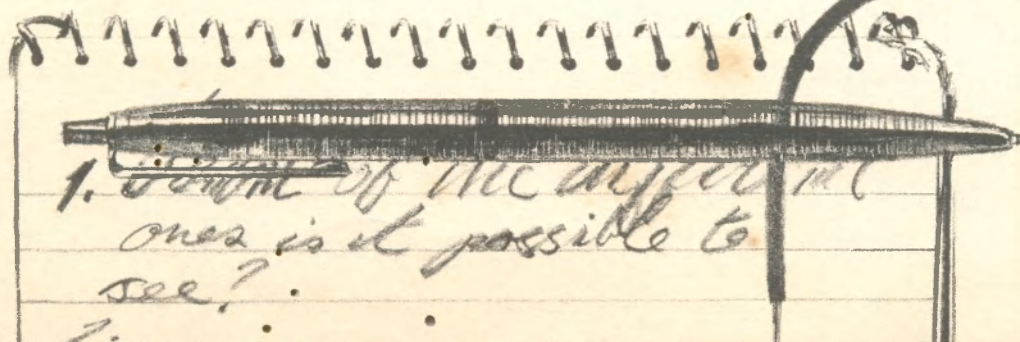 1. of the
ones is it possible to
see?
2.